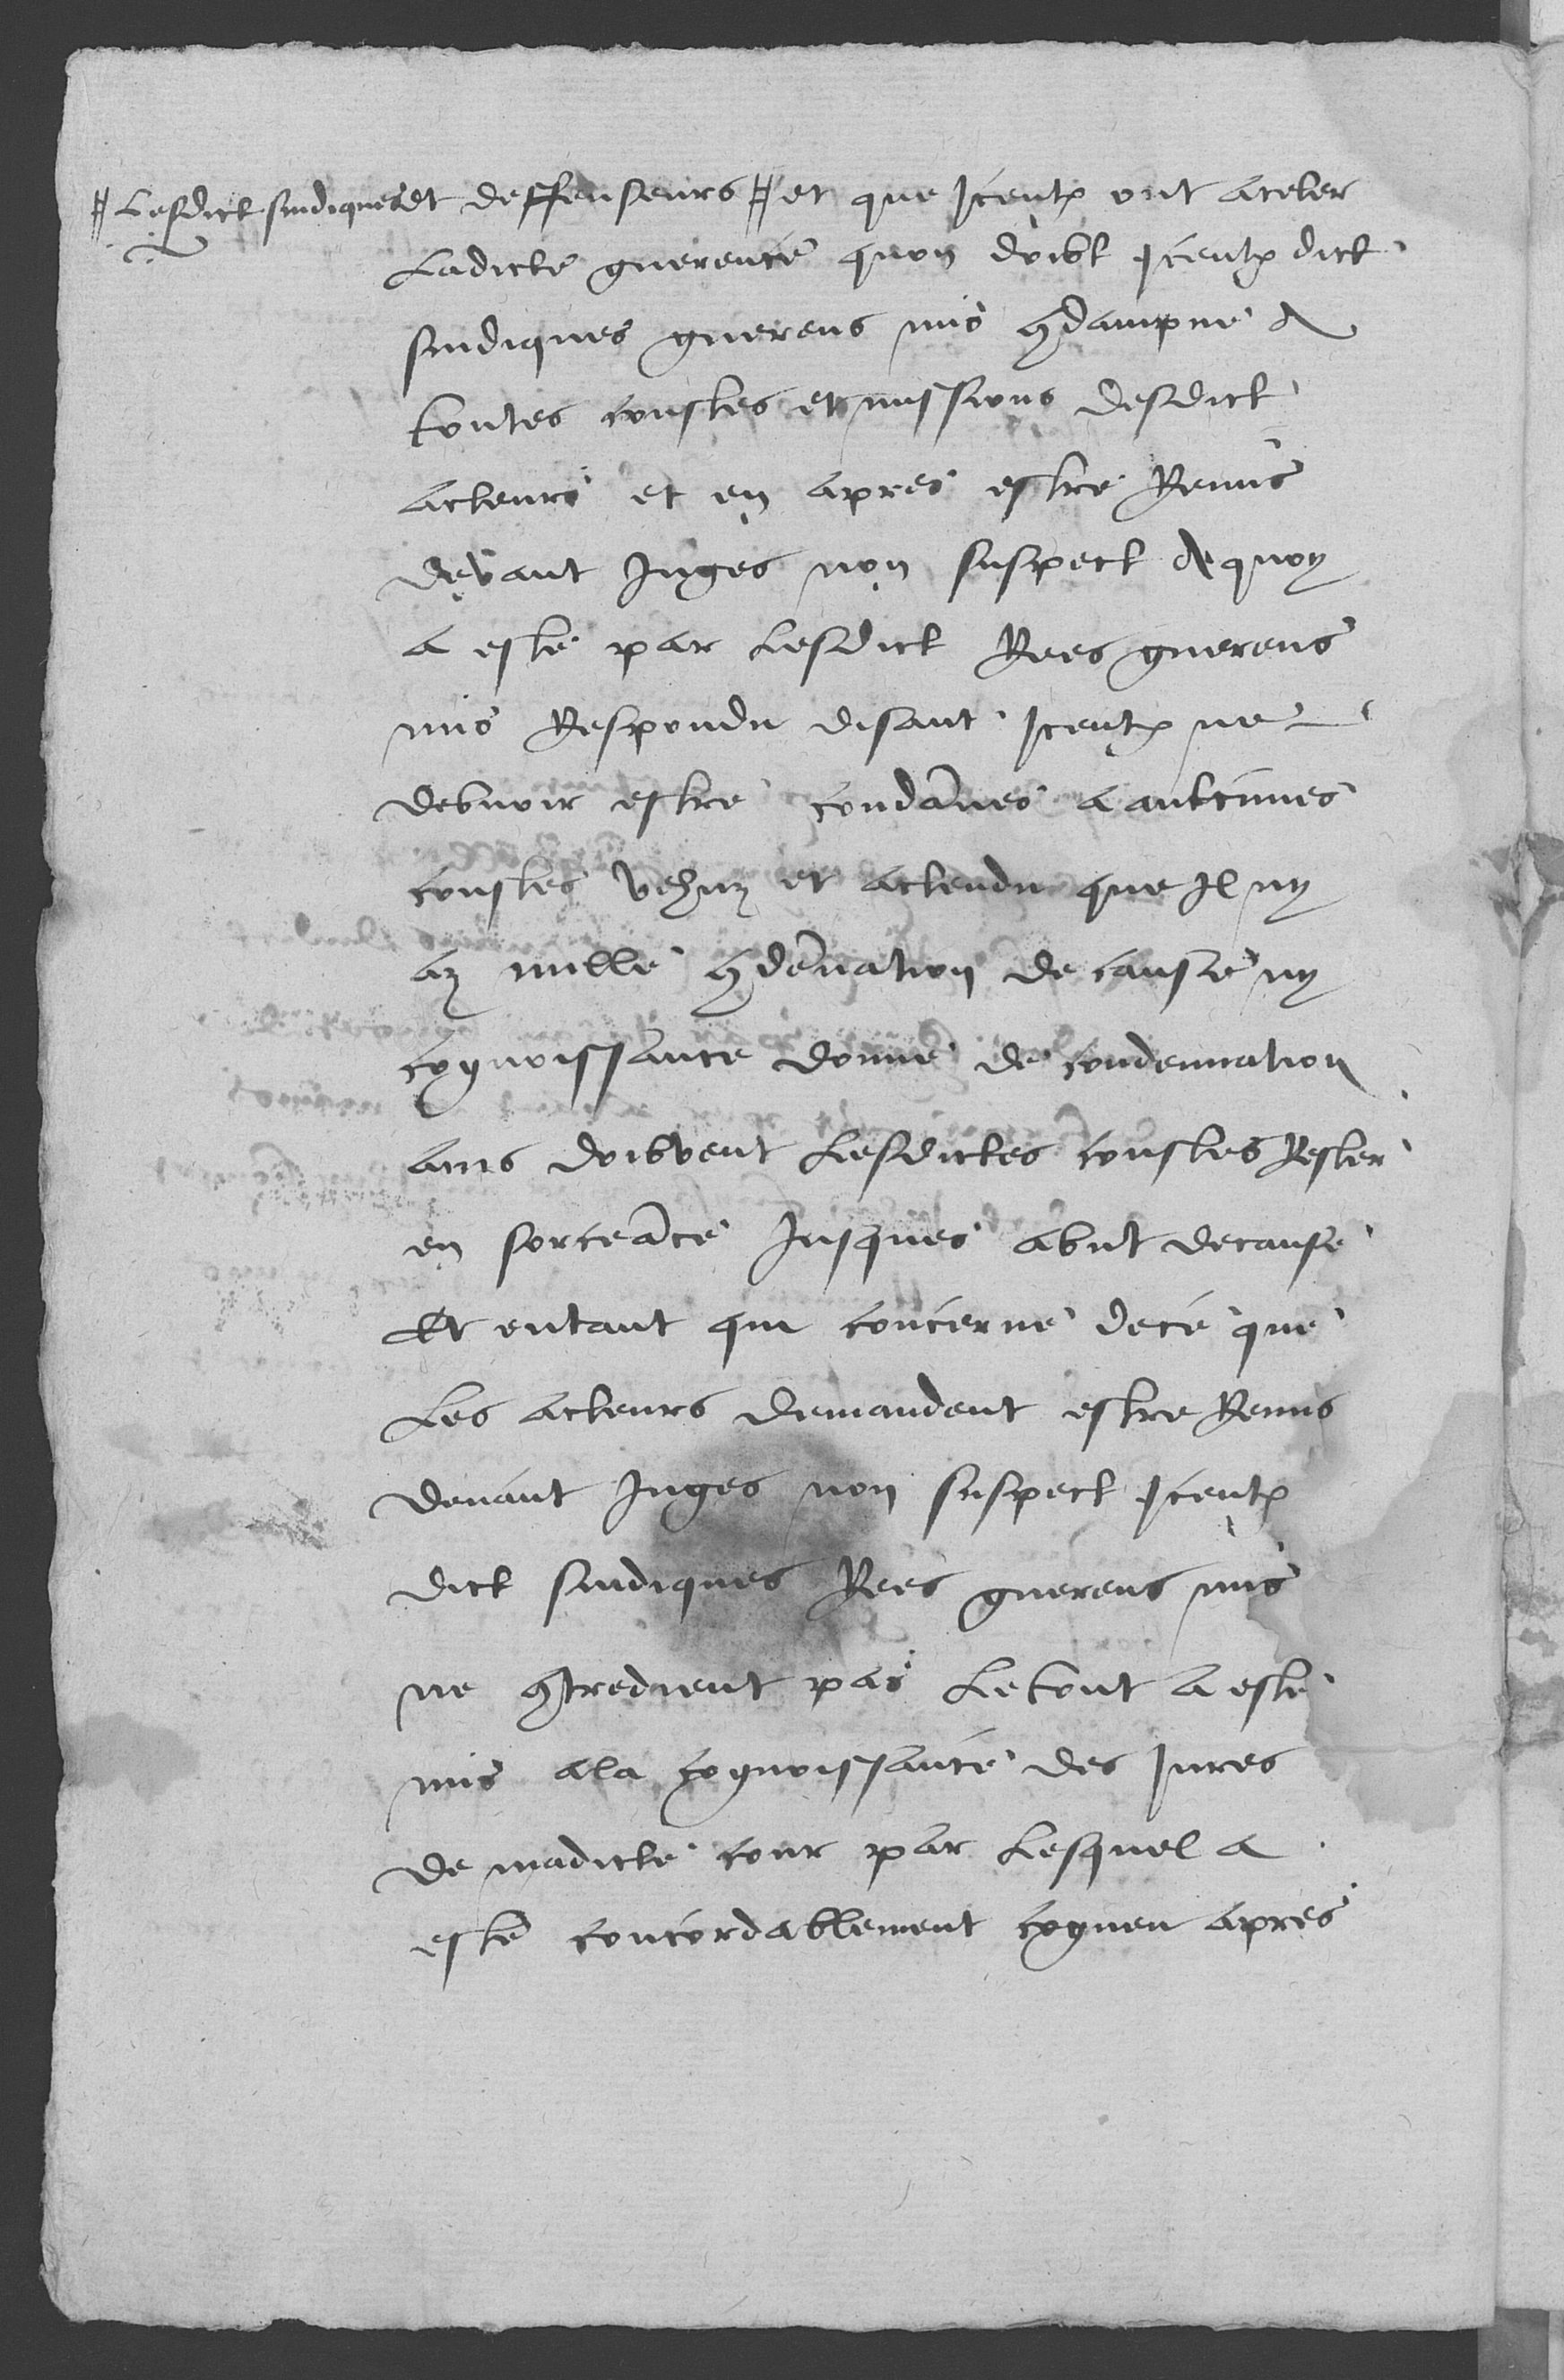 # Lesdict sindiques
et deffenseurs # et que Iceulx ont accler
Ladicte guerence quon doibt Iceulx dict
sindiques guerens mis condampne A
toutes coustes et missions desdict
acteurs et en apres estre Remis
devant Juges non suspect A quoy
a este par Lesdict Rees guerens
mis Respondu disant Iceulx ne
debvoir estre condanes a aulcunes
coustes vehuz et actendu que Il ny
az nulle condenation de cause ny
cognoissance donne de condemnation
ains doibvent Lesdictes coustes Rester
en sorceance Jusques abut de cause
Et en tant qui concerne de ce que
Les acteurs demandent estre Remis
devant Juges non suspect Iceulx
dict sindiques Rees guerens mis
ne contredient pas Le tout a este
mis a la cognoissance des Jures
de madicte cour par Lesquel a
este concordablement cogneu apres